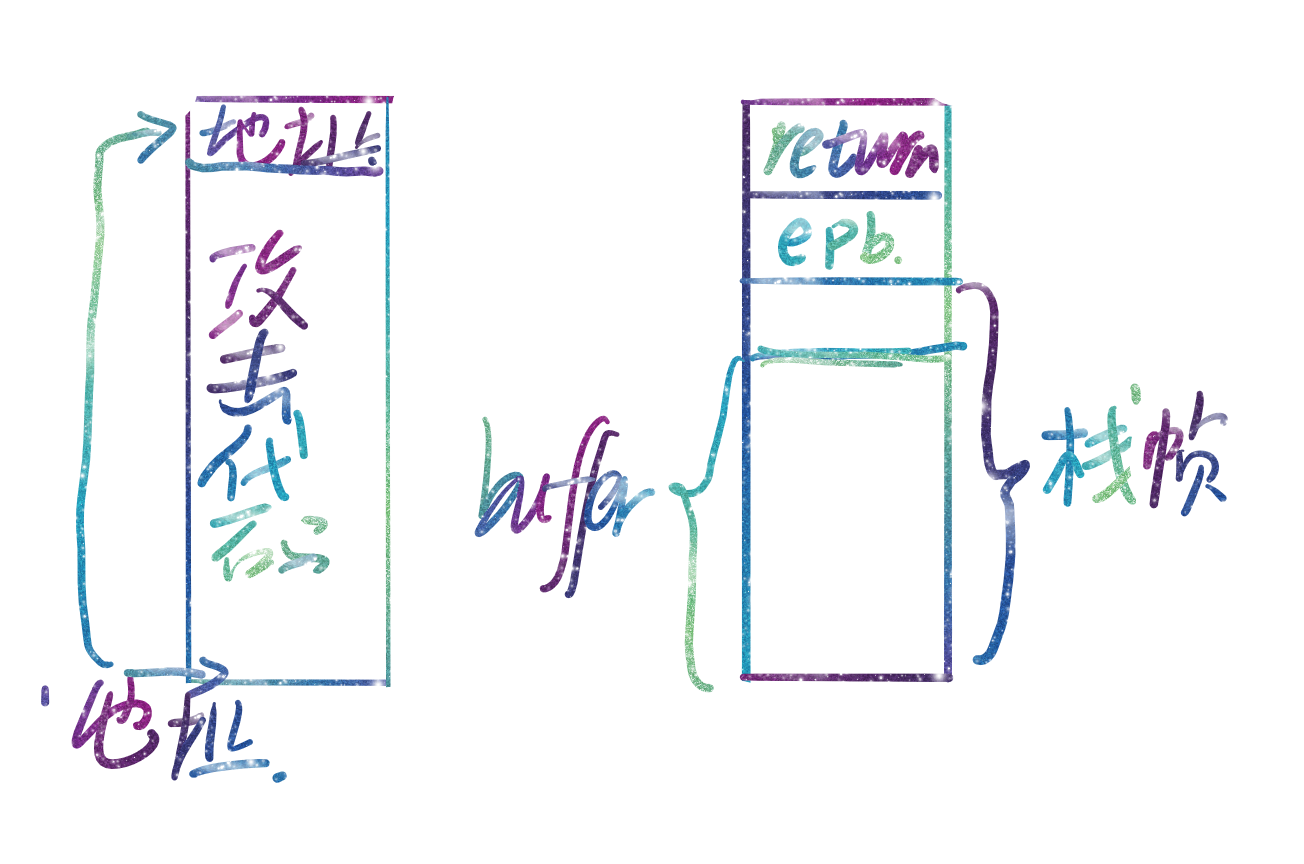 地址
攻
击
代
码
地址
return
epb.
buffer
栈帧